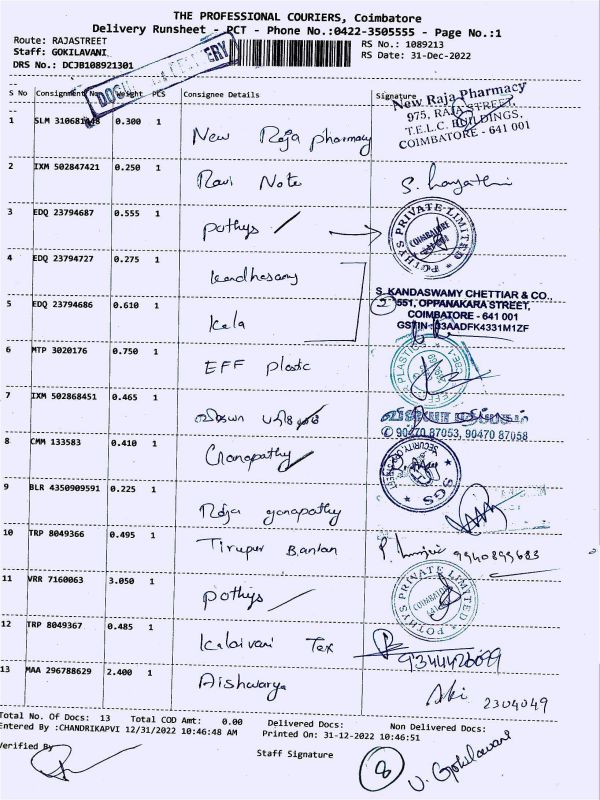 THE PROFESSIONAL COURIERS, Coimbatore
Delivery Runsheet - PCT - Phone No.:0422-3505555 - Page No.:1
Route: RAJASTREET
RS No.: 1089213
Staff: GOKILAVANI
RS Date: 31-Dec-2022
DRS No.: DCJB108921301
DELIVERY
S No Consignment No Weight PCS Consignee Details Signature
New Raja Pharmacy
975, RAJA STREET,
T.E.L.C. BUILDINGS,
COIMBATORE - 641 001
1 SLM 310681448 0.300 1 New Raja pharmacy
2 IXM 502847421 0.250 1 Ravi Note
3 EDQ 23794687 0.555 1 pothys
POTHYS PRIVATE LIMITED
COIMBATORE
4 EDQ 23794727 0.275 1 Kandhasamy
S. KANDASWAMY CHETTIAR & CO.,
2 551, OPPANAKARA STREET,
COIMBATORE - 641 001
GSTIN : 33AADFK4331M1ZF
5 EDQ 23794686 0.610 1 Kala
6 MTP 3020176 0.750 1 EFF plastic
7 IXM 502868451 0.465 1
✆ 90470 87053, 90470 87058
8 CMM 133583 0.410 1 Ganapathy
SGS
9 BLR 4350909591 0.225 1 Raja ganapathy
10 TRP 8049366 0.495 1 Tirupur
9940899683
11 VRR 7160063 3.050 1 pothys
POTHYS PRIVATE LIMITED
COIMBATORE
12 TRP 8049367 0.485 1 Kalaivani Tex
9344426099
13 MAA 296788629 2.400 1 Aishwarya
2304049
Total No. Of Docs: 13 Total COD Amt: 0.00 Delivered Docs: Non Delivered Docs:
Entered By :CHANDRIKAPVI 12/31/2022 10:46:48 AM Printed On: 31-12-2022 10:46:51
Verified By
Staff Signature
8
V. Gokilavani